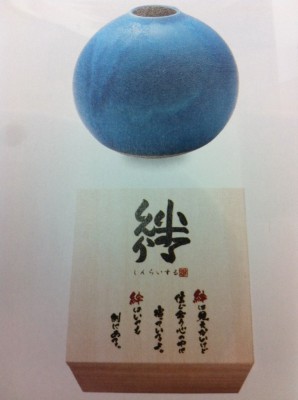 絆
しんらいする
絆は見えないけど
信じ合う心の中に
絆はいつも
側にある。